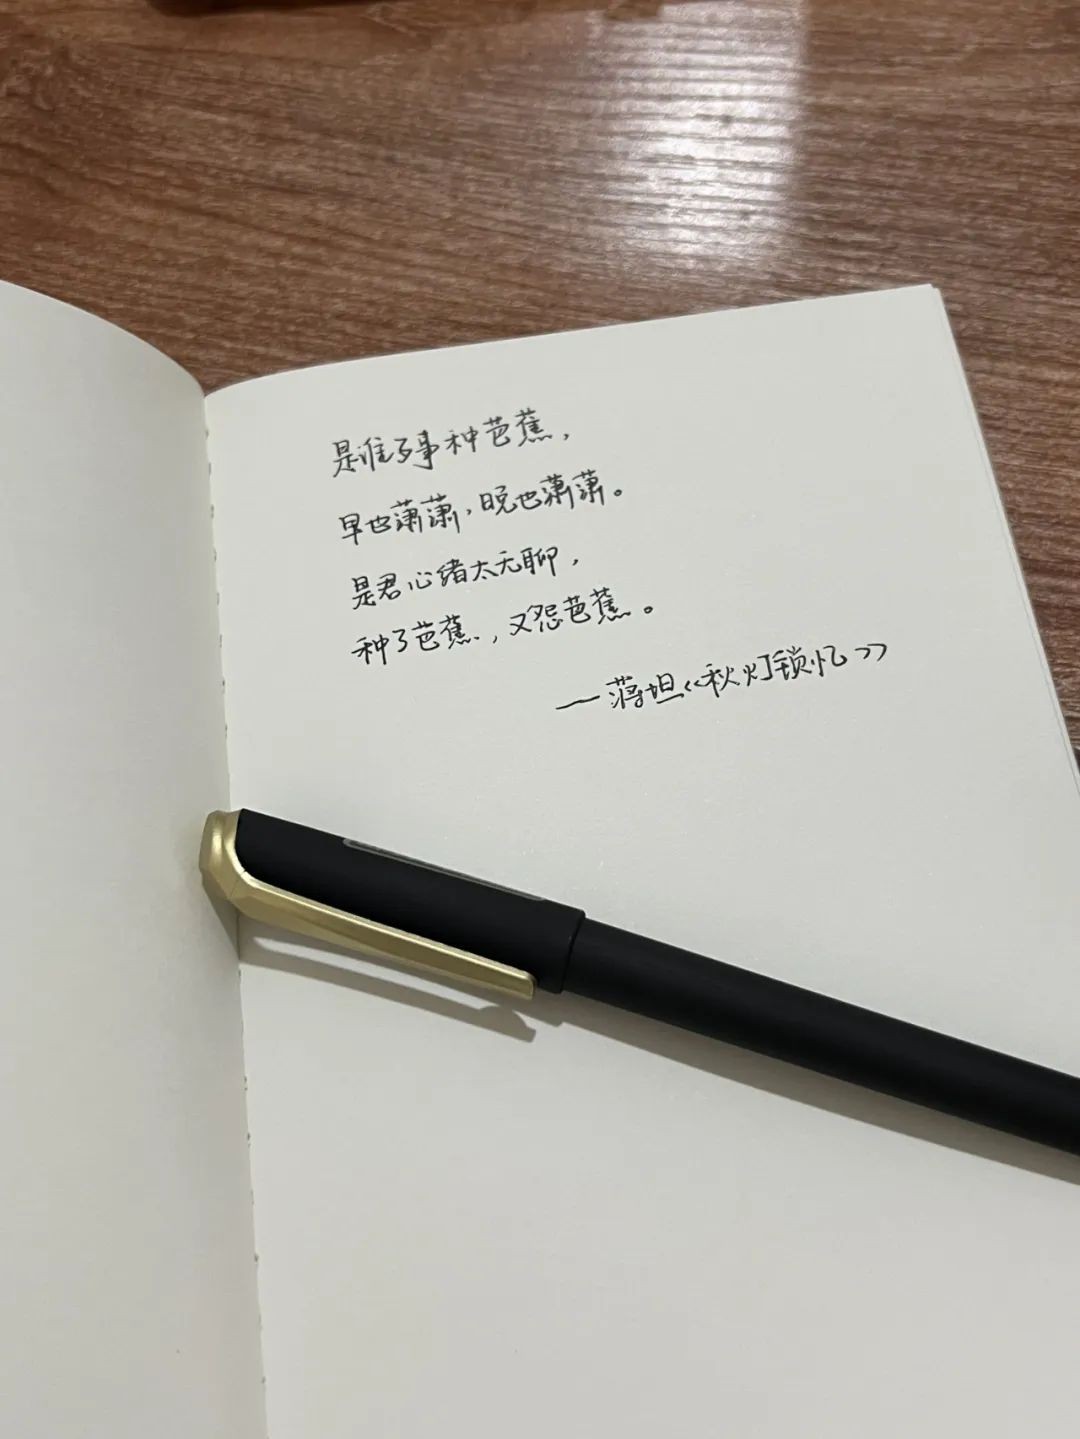 是谁多事种芭蕉，
早也潇潇，晚也潇潇。
是君心绪太无聊，
种了芭蕉，又怨芭蕉。
—蒋坦《秋灯锁忆》